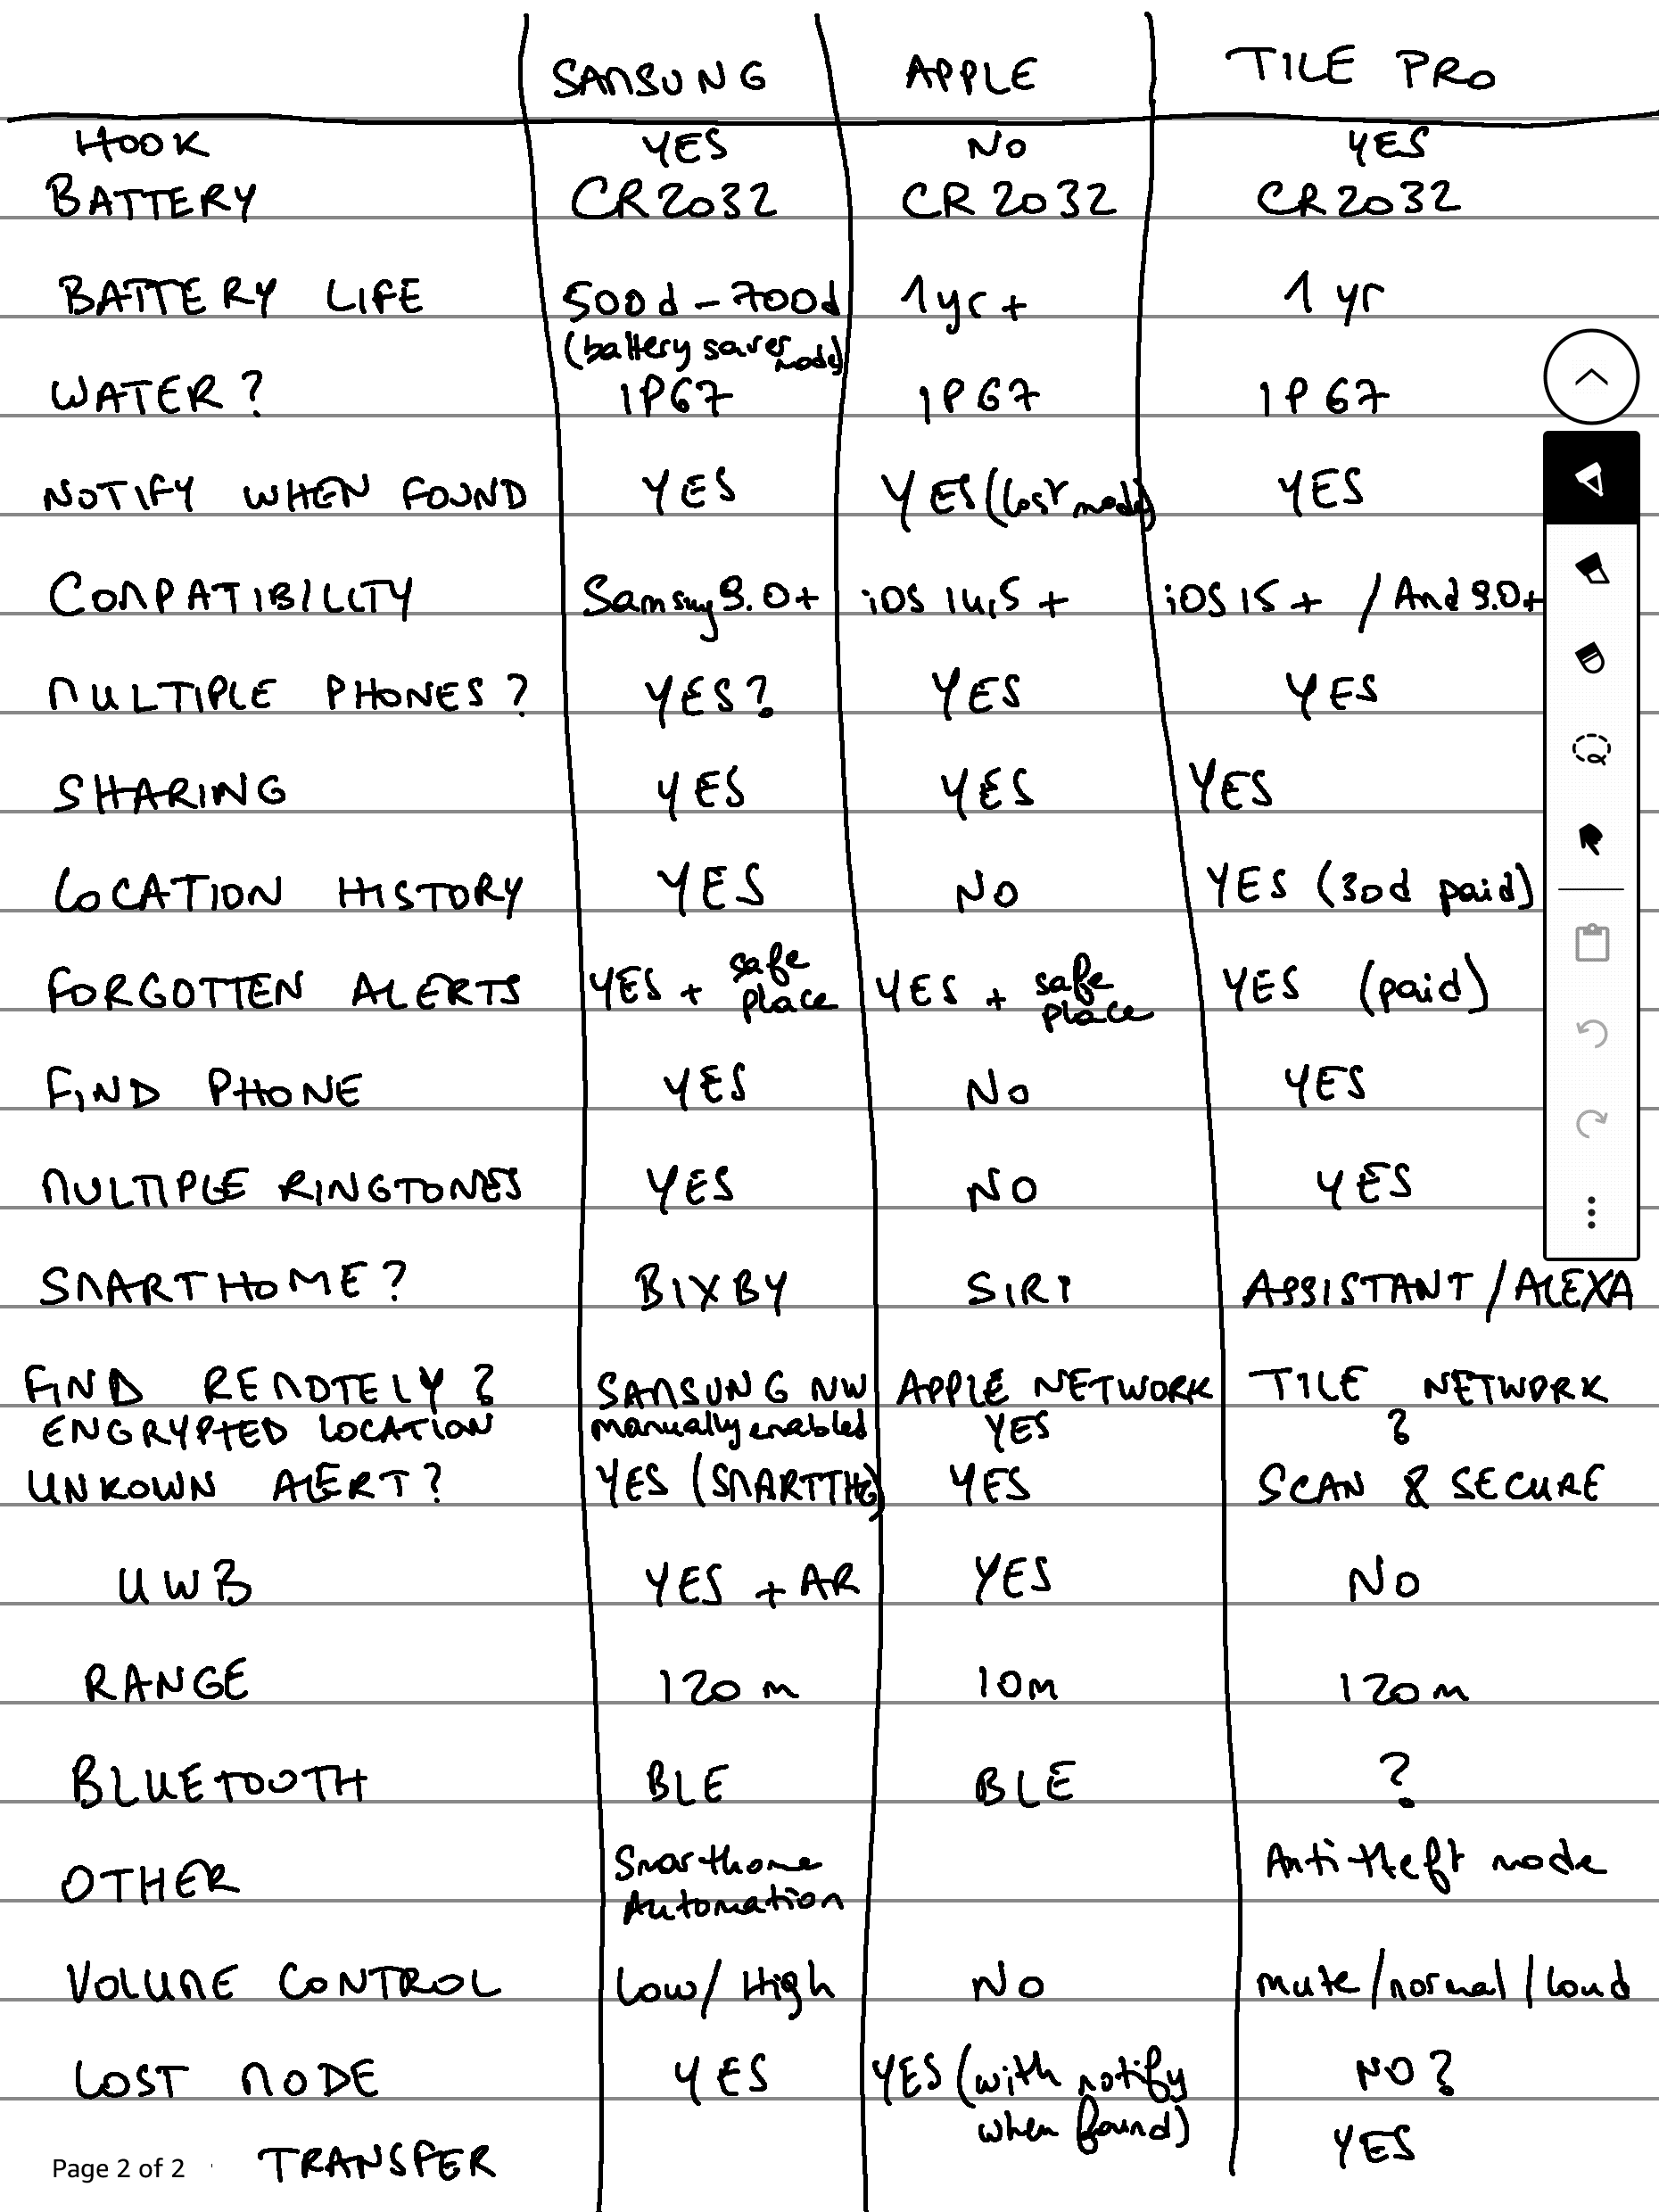 SAMSUNG APPLE TILE PRO
HOOK YES NO YES
BATTERY CR2032 CR2032 CR2032
BATTERY LIFE 500d-700d 1yr+ 1 yr
(battery saver mode)
WATER? IP67 IP67 IP67
NOTIFY WHEN FOUND YES YES (lost mode) YES
COMPATIBILITY Samsung 9.0+ iOS 14.5+ iOS 15+ / And 9.0+
MULTIPLE PHONES? YES? YES YES
SHARING YES YES YES
LOCATION HISTORY YES NO YES (30d paid)
FORGOTTEN ALERTS YES + safe place YES + safe place YES (paid)
FIND PHONE YES NO YES
MULTIPLE RINGTONES YES NO YES
SMARTHOME? BIXBY SIRI ASSISTANT / ALEXA
FIND REMOTELY? SAMSUNG NW APPLE NETWORK TILE NETWORK
ENCRYPTED LOCATION manually enabled YES ?
UNKOWN ALERT? YES (SMARTTHG) YES SCAN & SECURE
UWB YES + AR YES NO
RANGE 120m 10m 120m
BLUETOOTH BLE BLE ?
OTHER Smarthome Automation Anti theft mode
VOLUME CONTROL Low / High NO mute/normal/loud
LOST MODE YES YES (with notify when found) NO?
TRANSFER YES
Page 2 of 2